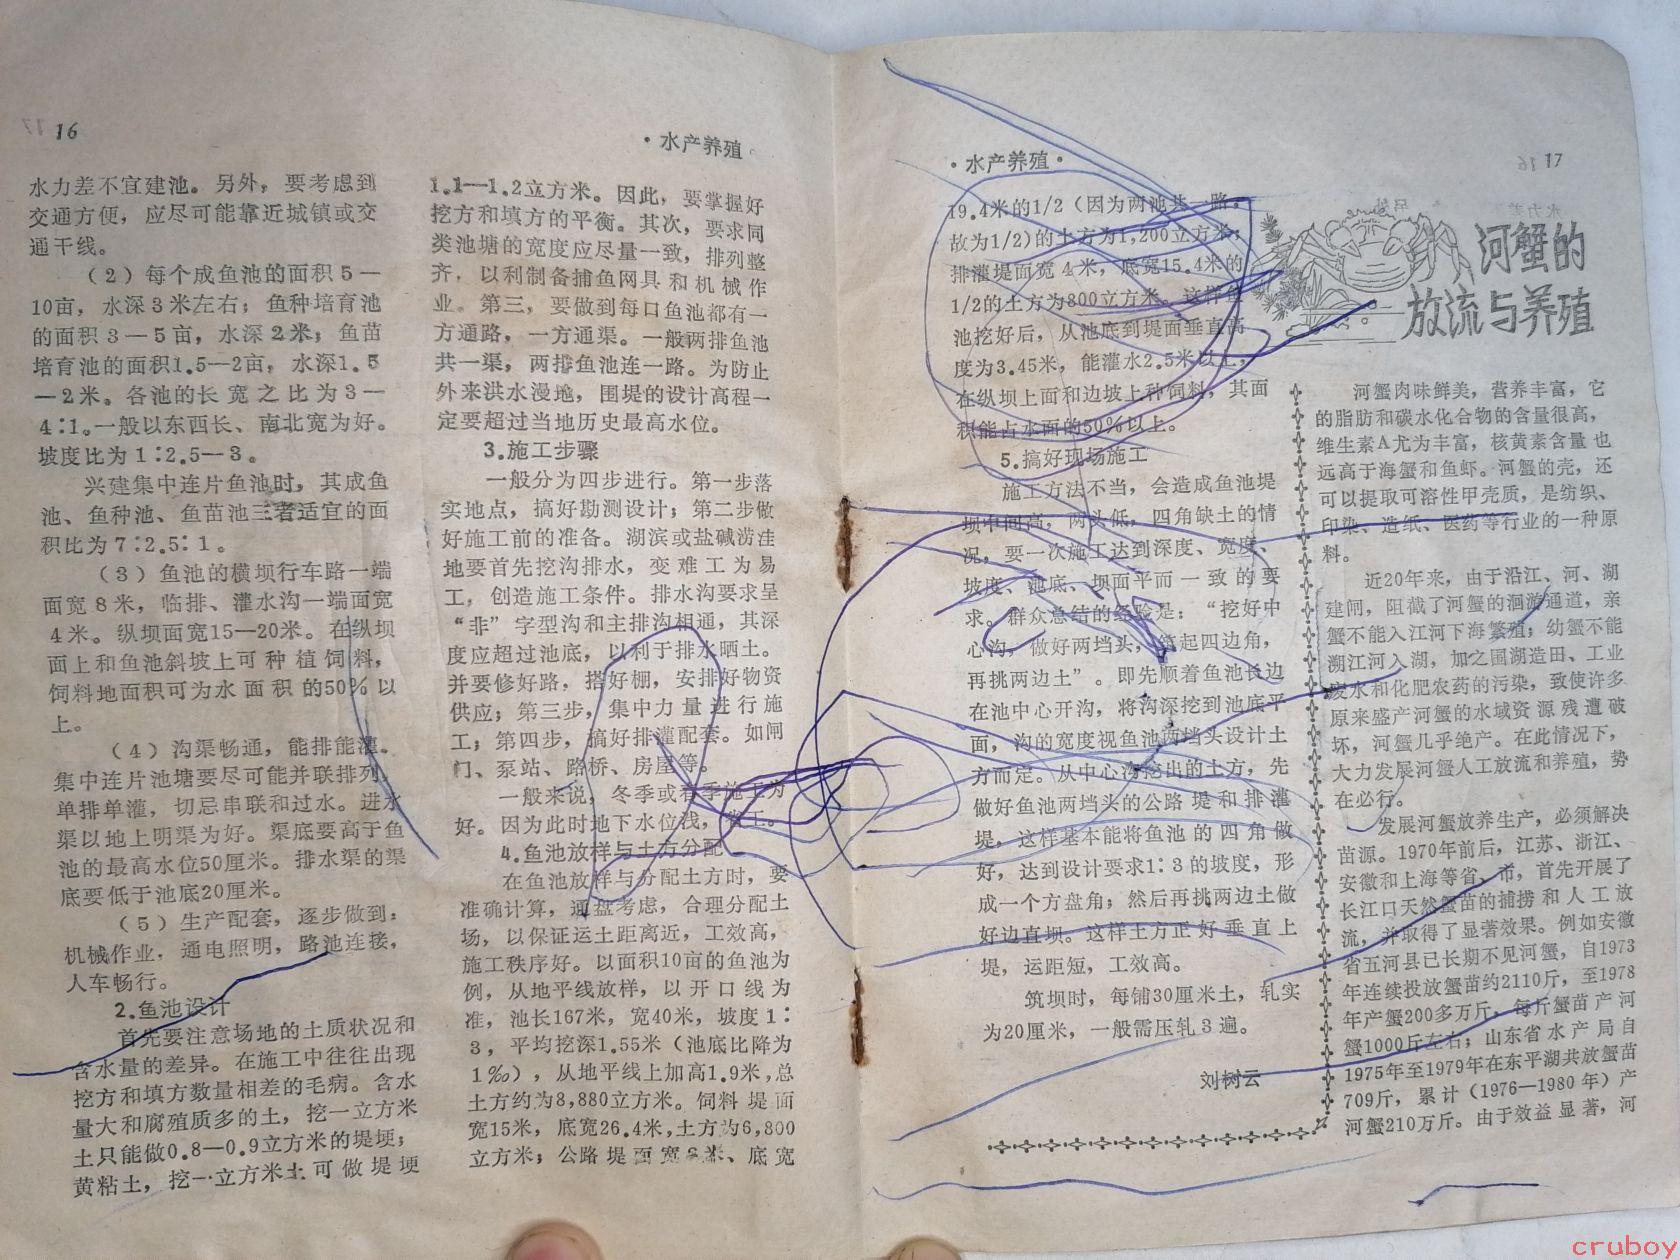 16
·水产养殖·
水力差不宜建池。另外，要考虑到
交通方便，应尽可能靠近城镇或交
通干线。
（2）每个成鱼池的面积5—
10亩，水深3米左右；鱼种培育池
的面积3—5亩，水深2米；鱼苗
培育池的面积1.5—2亩，水深1.5
—2米。各池的长宽之比为3—
4∶1。一般以东西长、南北宽为好。
坡度比为1∶2.5—3。
兴建集中连片鱼池时，其成鱼
池、鱼种池、鱼苗池三者适宜的面
积比为7∶2.5∶1。
（3）鱼池的横坝行车路一端
面宽8米，临排、灌水沟一端面宽
4米。纵坝面宽15—20米。在纵坝
面上和鱼池斜坡上可种植饲料，
饲料地面积可为水面积的50%以
上。
（4）沟渠畅通，能排能灌。
集中连片池塘要尽可能并联排列，
单排单灌，切忌串联和过水。进水
渠以地上明渠为好。渠底要高于鱼
池的最高水位50厘米。排水渠的渠
底要低于池底20厘米。
（5）生产配套，逐步做到：
机械作业，通电照明，路池连接，
人车畅行。
2.鱼池设计
首先要注意场地的土质状况和
含水量的差异。在施工中往往出现
挖方和填方数量相差的毛病。含水
量大和腐殖质多的土，挖一立方米
土只能做0.8—0.9立方米的堤埂；
黄粘土，挖一立方米土可做堤埂
1.1—1.2立方米。因此，要掌握好
挖方和填方的平衡。其次，要求同
类池塘的宽度应尽量一致，排列整
齐，以利制备捕鱼网具和机械作
业。第三，要做到每口鱼池都有一
方通路，一方通渠。一般两排鱼池
共一渠，两排鱼池连一路。为防止
外来洪水漫地，围堤的设计高程一
定要超过当地历史最高水位。
3.施工步骤
一般分为四步进行。第一步落
实地点，搞好勘测设计；第二步做
好施工前的准备。湖滨或盐碱涝洼
地要首先挖沟排水，变难工为易
工，创造施工条件。排水沟要求呈
“非”字型沟和主排沟相通，其深
度应超过池底，以利于排水晒土。
并要修好路，搭好棚，安排好物资
供应；第三步，集中力量进行施
工；第四步，搞好排灌配套。如闸
门、泵站、路桥、房屋等。
一般来说，冬季或春季施工为
好。因为此时地下水位浅，省工。
4.鱼池放样与土方分配
在鱼池放样与分配土方时，要
准确计算，通盘考虑，合理分配土
场，以保证运土距离近，工效高，
施工秩序好。以面积10亩的鱼池为
例，从地平线放样，以开口线为
准，池长167米，宽40米，坡度1∶
3，平均挖深1.55米（池底比降为
1‰），从地平线上加高1.9米，总
土方约为8,880立方米。饲料堤面
宽15米，底宽26.4米，土方为6,800
立方米；公路堤面宽8米、底宽
·水产养殖·
17
19.4米的1/2（因为两池共一路，
故为1/2）的土方为1,200立方米；
排灌堤面宽4米，底宽15.4米的
1/2的土方为800立方米。这样使
池挖好后，从池底到堤面垂直高
度为3.45米，能灌水2.5米以上，
在纵坝上面和边坡上种饲料，其面
积能占水面的50%以上。
5.搞好现场施工
施工方法不当，会造成鱼池堤
坝中间高，两头低，四角缺土的情
况，要一次施工达到深度、宽度、
坡度、池底、坝面平而一致的要
求。群众总结的经验是：“挖好中
心沟，做好两垱头，筑起四边角，
再挑两边土”。即先顺着鱼池长边
在池中心开沟，将沟深挖到池底平
面，沟的宽度视鱼池两垱头设计土
方而定。从中心沟挖出的土方，先
做好鱼池两垱头的公路堤和排灌
堤，这样基本能将鱼池的四角做
好，达到设计要求1∶3的坡度，形
成一个方盘角；然后再挑两边土做
好边直坝。这样土方正好垂直上
堤，运距短，工效高。
筑坝时，每铺30厘米土，轧实
为20厘米，一般需压轧3遍。
刘树云
河蟹的
放流与养殖
河蟹肉味鲜美，营养丰富，它
的脂肪和碳水化合物的含量很高，
维生素A尤为丰富，核黄素含量也
远高于海蟹和鱼虾。河蟹的壳，还
可以提取可溶性甲壳质，是纺织、
印染、造纸、医药等行业的一种原
料。
近20年来，由于沿江、河、湖
建闸，阻截了河蟹的洄游通道，亲
蟹不能入江河下海繁殖；幼蟹不能
溯江河入湖，加之围湖造田、工业
废水和化肥农药的污染，致使许多
原来盛产河蟹的水域资源残遭破
坏，河蟹几乎绝产。在此情况下，
大力发展河蟹人工放流和养殖，势
在必行。
发展河蟹放养生产，必须解决
苗源。1970年前后，江苏、浙江、
安徽和上海等省、市，首先开展了
长江口天然蟹苗的捕捞和人工放
流，并取得了显著效果。例如安徽
省五河县已长期不见河蟹，自1973
年连续投放蟹苗约2110斤，至1978
年产蟹200多万斤，每斤蟹苗产河
蟹1000斤左右；山东省水产局自
1975年至1979年在东平湖共放蟹苗
709斤，累计（1976—1980年）产
河蟹210万斤。由于效益显著，河
cruboy